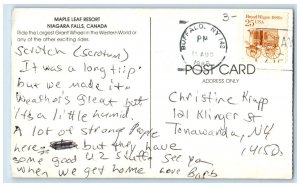 MAPLE LEAF RESORT
NIAGARA FALLS, CANADA
Ride the Largest Giant Wheel in the Western World or
any of the other exciting rides.
Scrotch (scrotum)
It was a long trip
but we made it
Weather's great but
it's a little humid
A lot of strange people
here but they have
some good U2 stuff see you
when we get home Love Barb
BUFFALO, NY 142
PM
AUG
Bread Wagon 1880s
25 USA
POST CARD
ADDRESS ONLY
Christine Krupp
121 Klinger St
Tonawanda, NY
14150